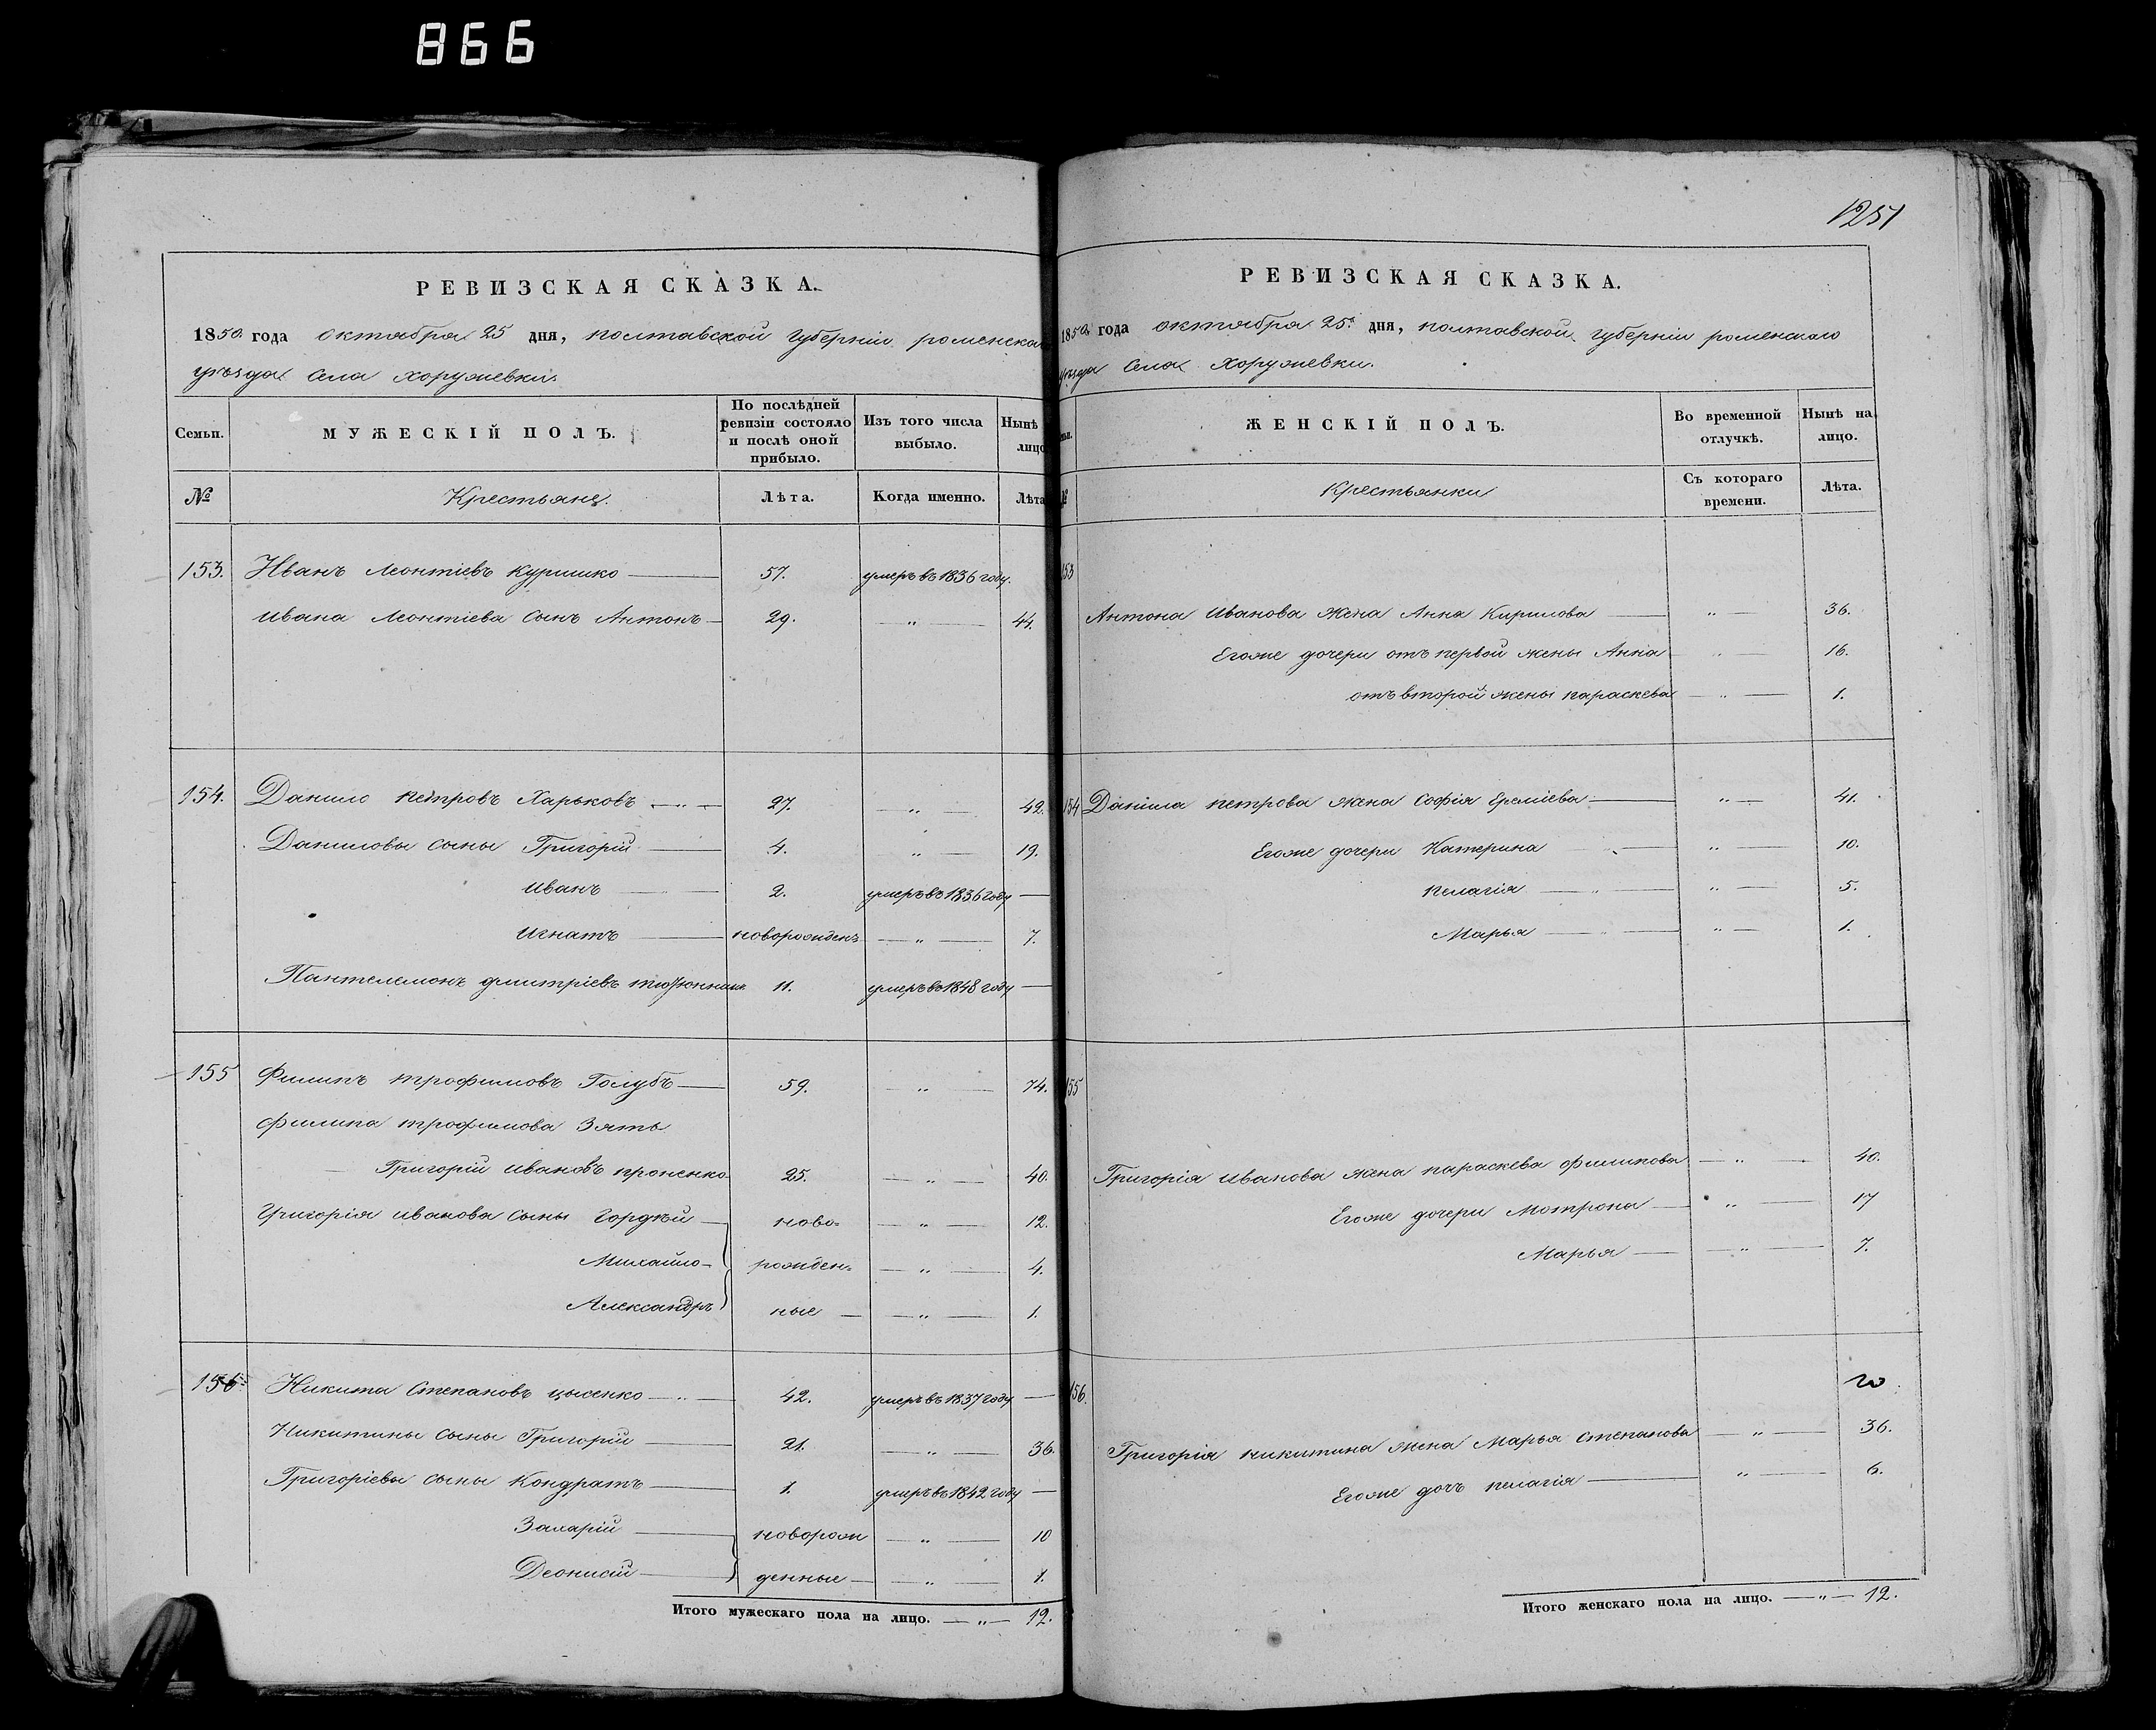 866
РЕВИЗСКАЯ СКАЗКА.
1850. года октября 25 дня, полтавской губерніи роменска
уѣзда села хоружевки.
Семьи.
МУЖЕСКІЙ ПОЛЪ.
По послѣдней ревизіи состояло и послѣ оной прибыло.
Изъ того числа выбыло.
Нынѣ лицо
№
Крестьяне.
Лѣта.
Когда именно.
Лѣта
153. Иванъ Леонтіевъ Куришко 57. умеръ въ 1836 году.
Ивана Леонтіева сынъ Антонъ 29. „ 44.
154. Данило петровъ Харьковъ 27. „ 42.
Даниловы сыны Григорій 4. „ 19.
Иванъ 2. умеръ въ 1836 году —
Игнатъ новорожденъ „ 7.
Пантелемонъ дмитріевъ 11. умеръ въ 1848 году —
155 Филипъ трофимовъ Голубъ 59. „ 74.
Филипа трофимова Зять
Григорій Ивановъ проненко 25. „ 40.
Григорія иванова сыны Гордѣй ново- „ 12.
Михайло рожден- „ 4.
Александръ ные „ 1.
156. Никита Степановъ цысенко 42. умеръ въ 1837 году —
Никитины сыны Григорій 21. „ 36.
Григоріевы сыны Кондратъ 1. умеръ въ 1842 году —
Захарій новорож „ 10
Деонисій денные „ 1.
Итого мужескаго пола на лицо. — „ — 12.
1251
РЕВИЗСКАЯ СКАЗКА.
1850, года октября 25. дня, полтавской губерніи роменскаго
уѣзда села Хоружевки.
ЖЕНСКІЙ ПОЛЪ.
Во временной отлучкѣ.
Нынѣ на лицо.
№
Крестьянки
Съ котораго времени.
Лѣта.
153
Антона Иванова жена Анна Кирилова „ 36.
Егоже дочери отъ первой жены Анна „ 16.
отъ второй жены параскева „ 1.
154 Данила петрова жена Софія Ереміева „ 41.
Егоже дочери Катерина „ 10.
пелагія „ 5.
Марья „ 1.
155
Григорія Иванова жена параскева филипова „ 40.
Егоже дочери Мотрона „ 17
Марья „ 7.
156.
Григорія никитина жена Марья степанова „ 36.
Егоже дочь пелагія „ 6.
Итого женскаго пола на лицо. — „ — 12.